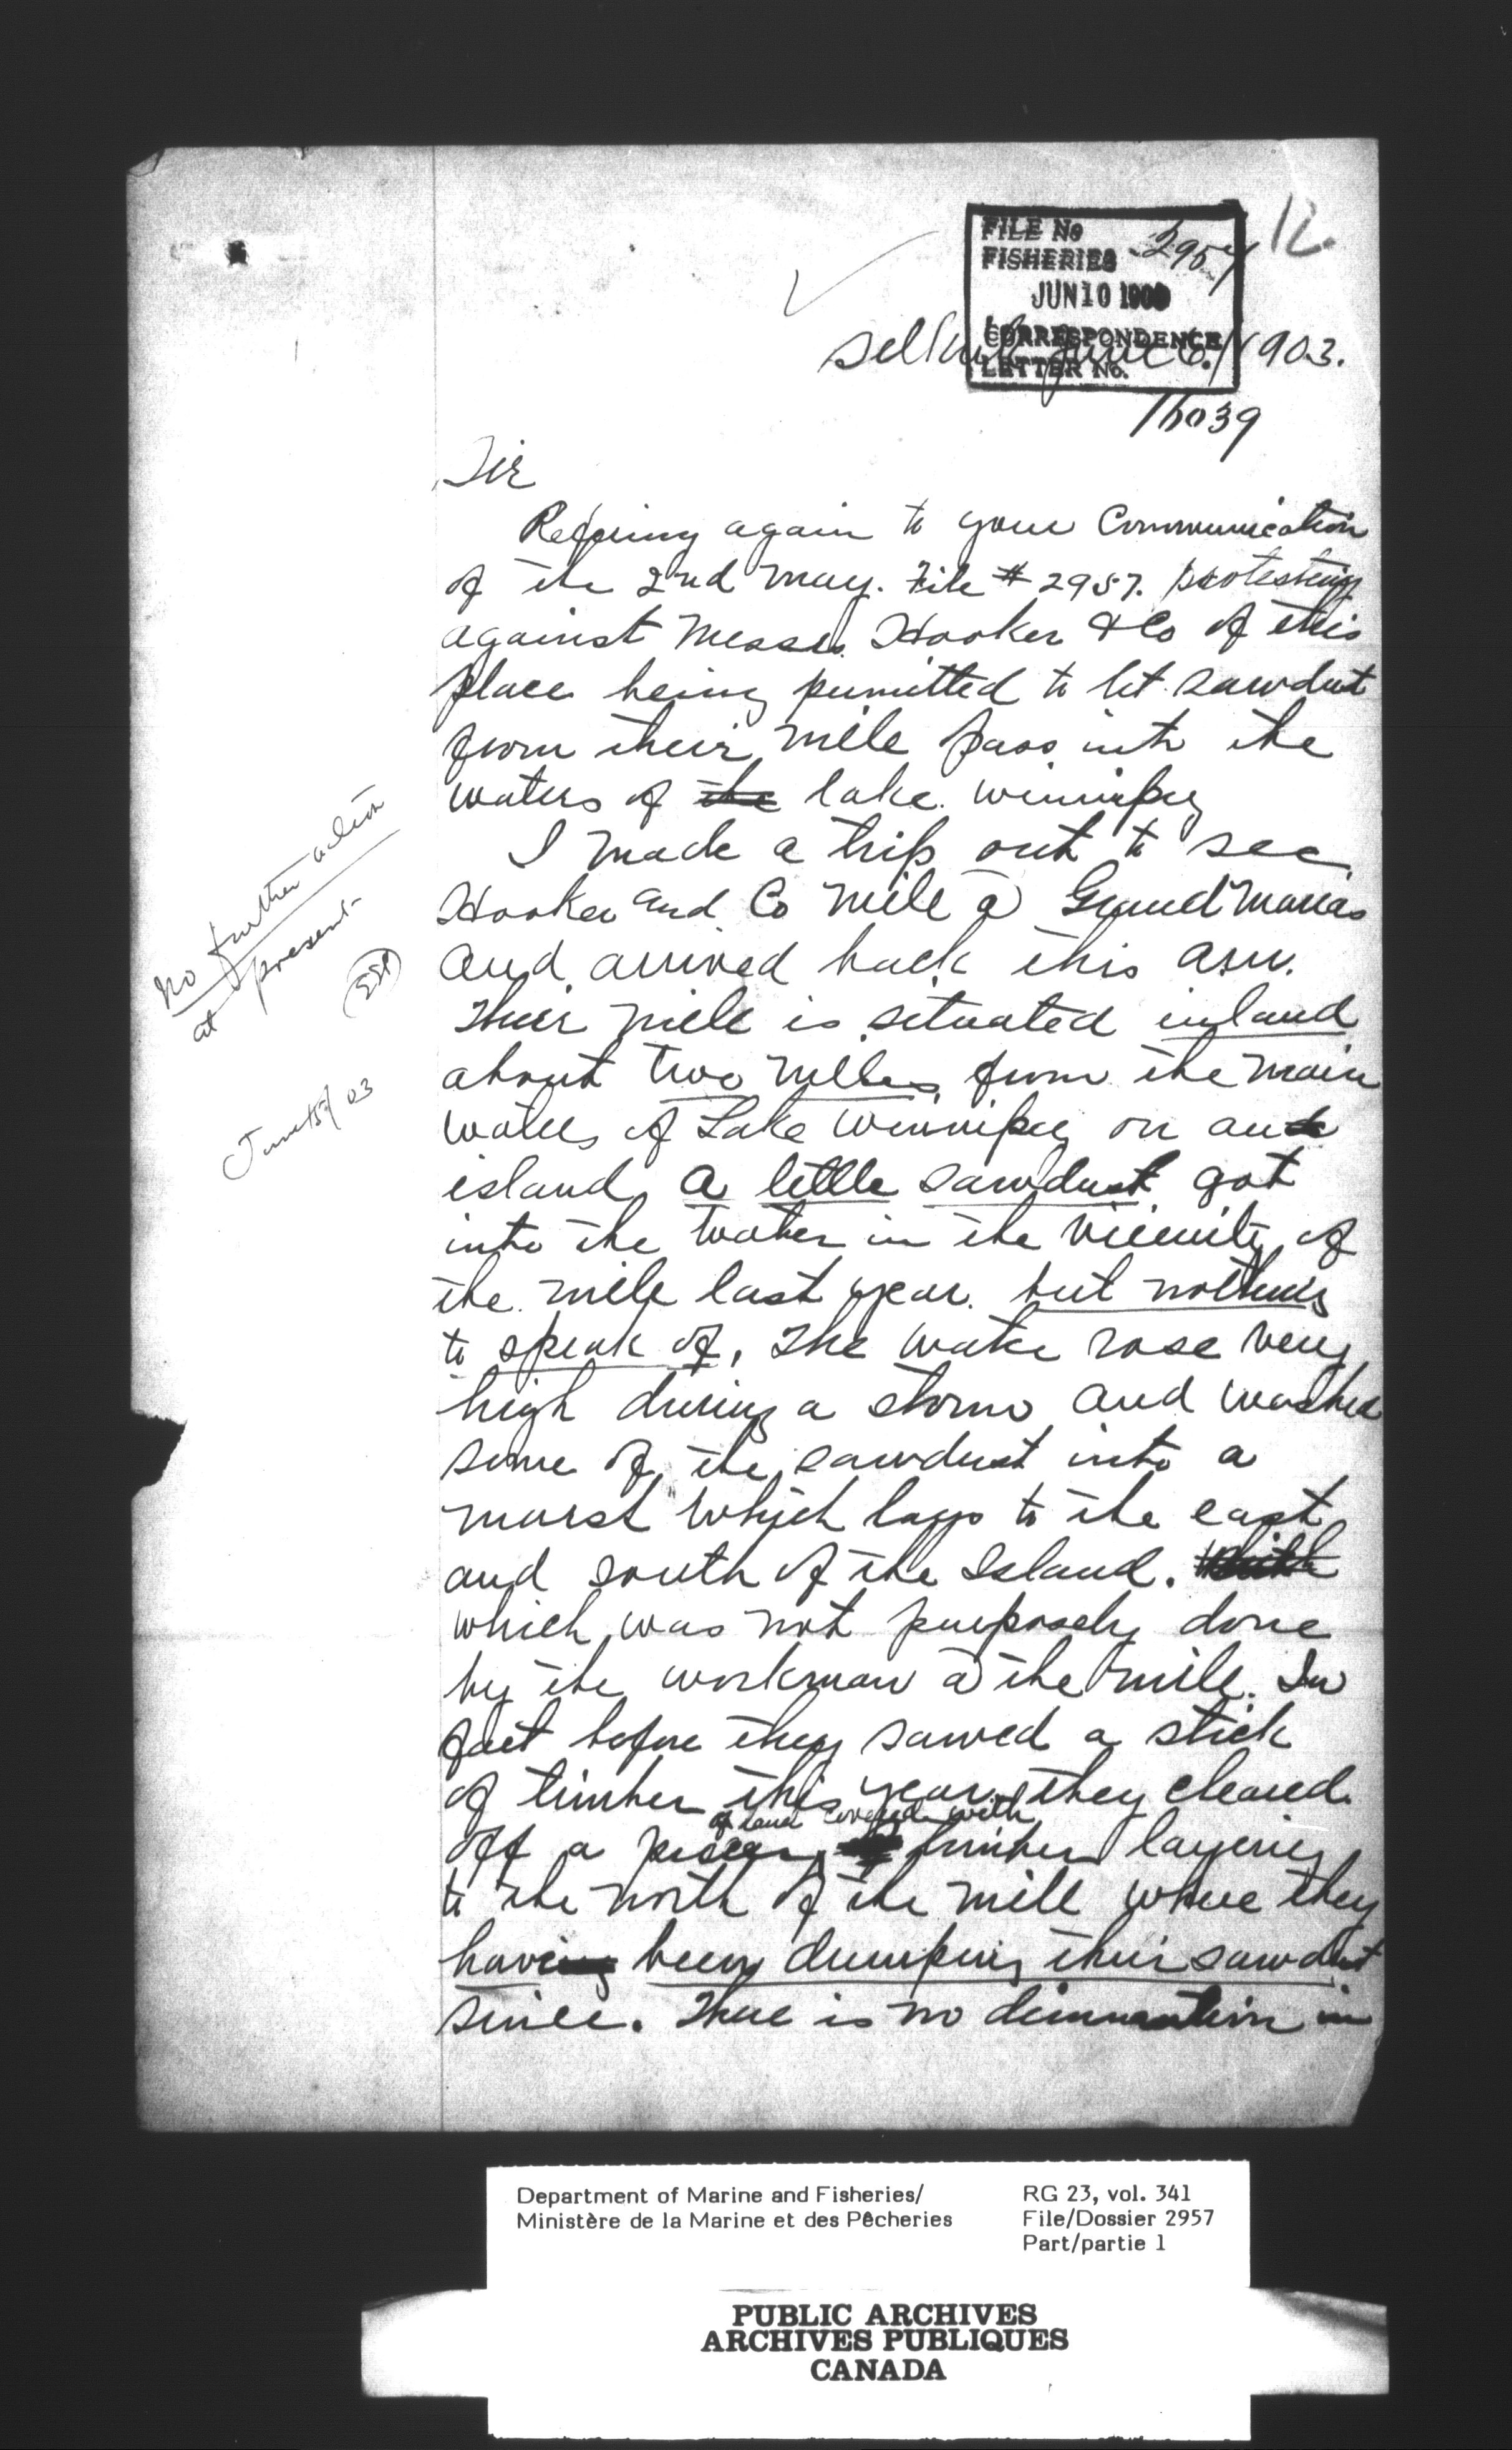 12.
FILE No 2957
FISHERIES
JUN 10 1903
CORRESPONDENCE
LETTER No.
Selkirk June 6. 1903.
16039
Sir
Refering again to your Communication
of the 2nd May. File # 2957. protesting
against Messrs. Hooker & Co of this
place being permitted to let sawdust
from their mile pass into the
waters of the lake. Winnipeg
I made a trip out to see
Hooker and Co mile @ Grand Marias
and arrived back this am.
Their mile is situated inland
about two miles from the main
waters of Lake Winnipeg on an
island, a little sawdust got
into the water in the vicinity of
the mile last year. but nothing
to speak of. The water rose very
high during a storm and washed
some of the sawdust into a
marsh which lays to the east
and south of the Island.
which was not purposely done
by the workman @ the mile. In
fact before they sawed a stick
of timber this year, they cleared
of land covered with
off a timber laying
to the north of the mill where they
having been dumping their sawdust
since. There is no in
no further action
at present-
June 15/03
Department of Marine and Fisheries/
Ministère de la Marine et des Pêcheries
RG 23, vol. 341
File/Dossier 2957
Part/partie 1
PUBLIC ARCHIVES
ARCHIVES PUBLIQUES
CANADA